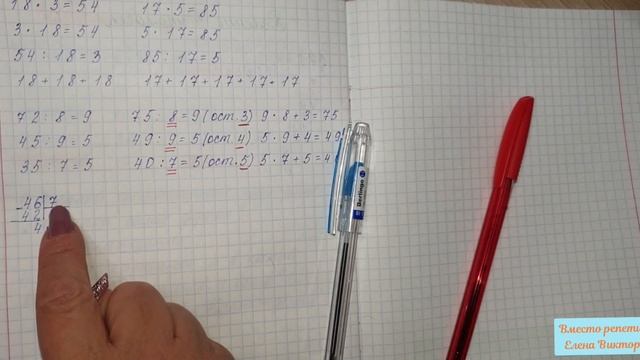 18 · 3 = 54
17 · 5 = 85
3 · 18 = 54
5 · 17 = 85
54 : 18 = 3
85 : 17 = 5
18 + 18 + 18
17 + 17 + 17 + 17 + 17
72 : 8 = 9
75 : 8 = 9 (ост. 3) 9 · 8 + 3 = 75
45 : 9 = 5
49 : 9 = 5 (ост. 4) 5 · 9 + 4 = 49
35 : 7 = 5
40 : 7 = 5 (ост. 5) 5 · 7 + 5 = 4
- 46 | 7
42
4
Berlingo
Вместо репети
Елена Виктор